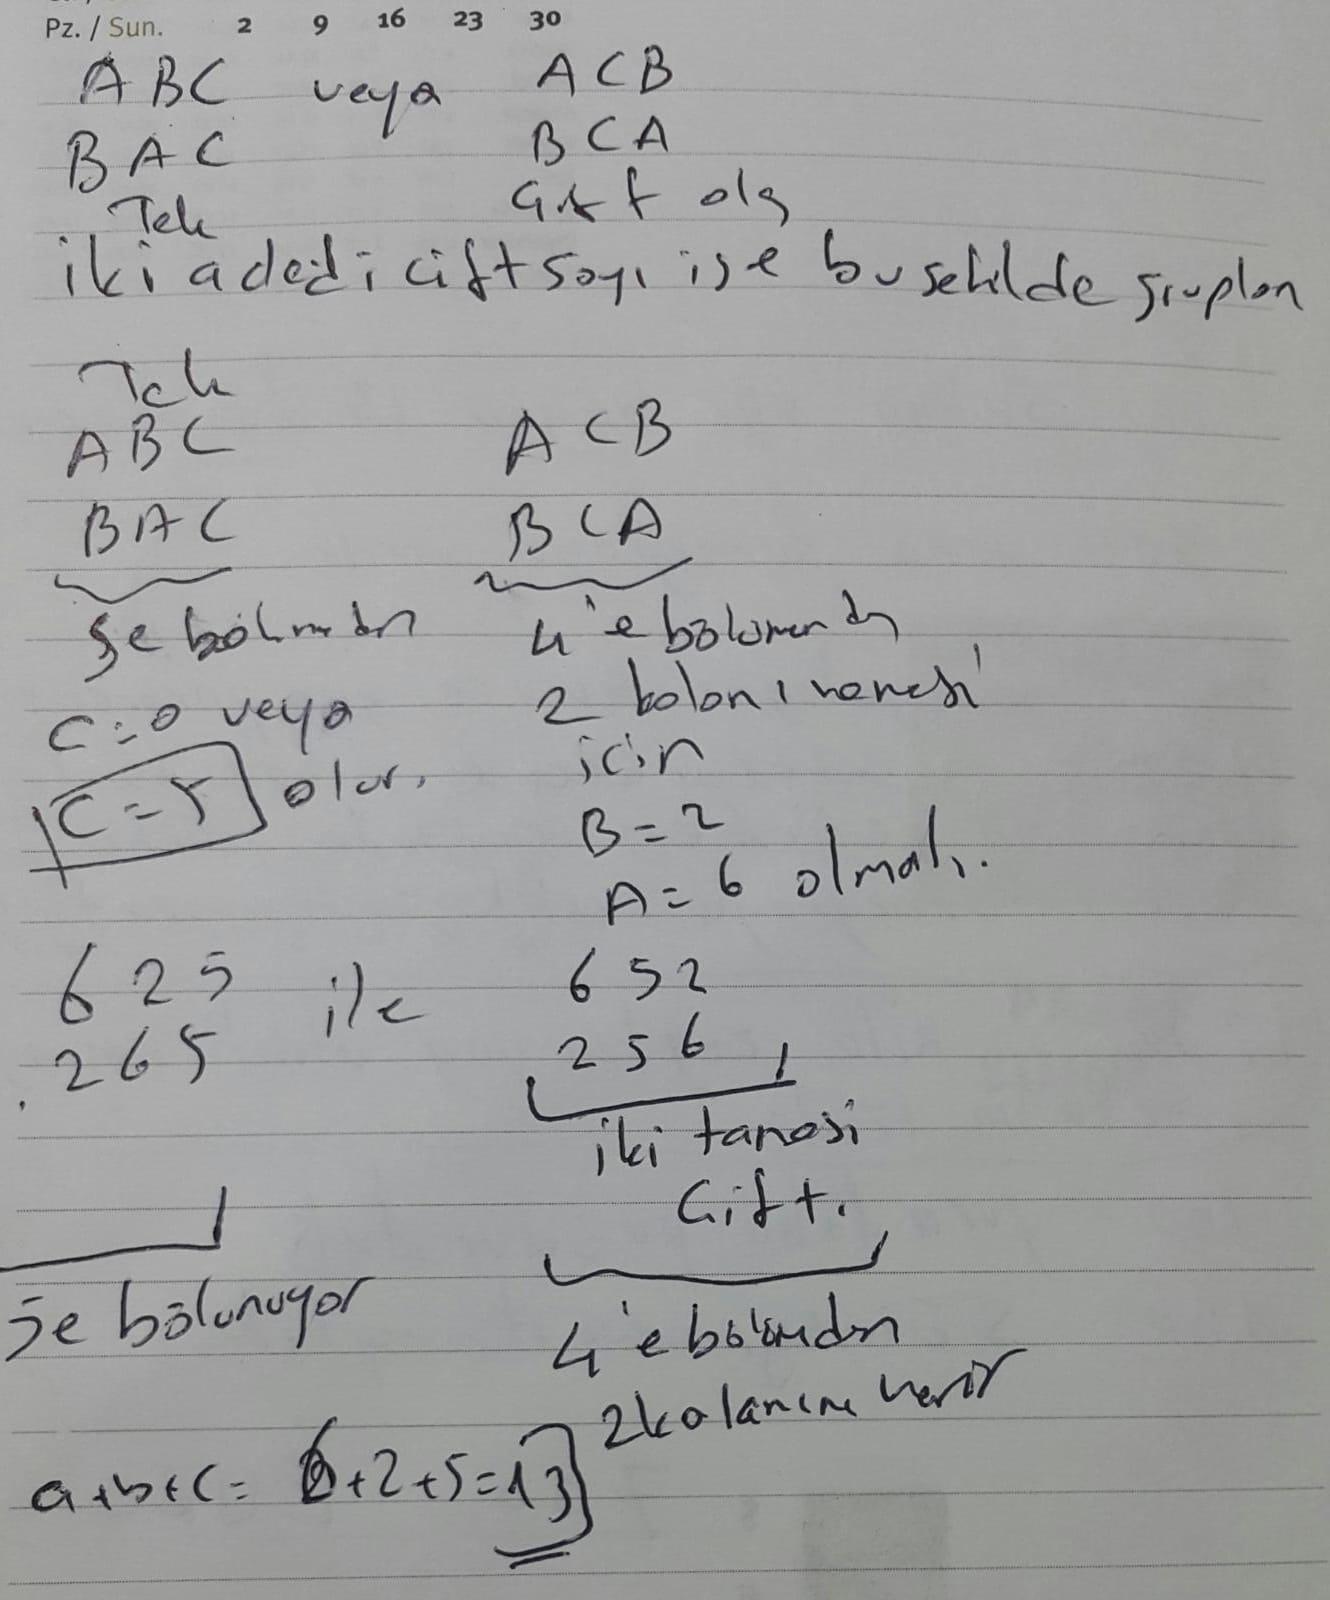 Pz. / Sun. 2 9 16 23 30
ABC veya ACB
BAC BCA
Tek Çift olş
iki adedi çift sayı ise bu şekilde gruplan
Tek
ABC ACB
BAC BCA
5e bölümden 4'e bölümenden
C=0 veya 2 kalanı vermesi
C=5 olur. için
B=2
A=6 olmalı.
625 ile 652
265 256
iki tanesi
Çift.
5e bölünüyor 4'e bölümden
2 kalanını verir
a+b+c= 6+2+5=13